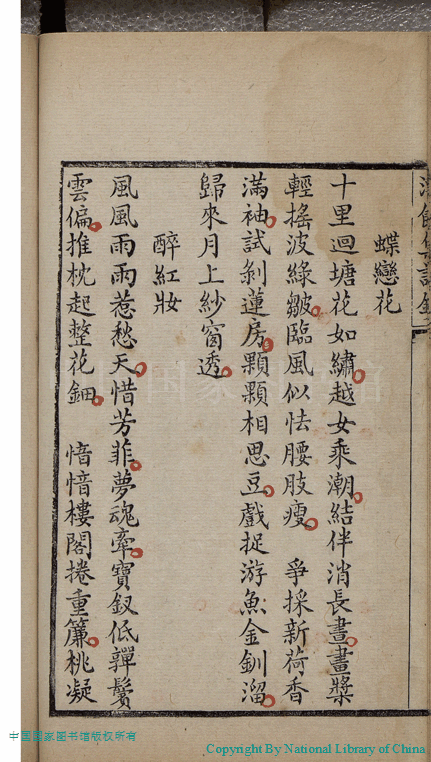 蝶戀花
十里迴塘花如繡越女乘潮結伴消長晝畫槳
輕搖波綠皺臨風似怯腰肢瘦　爭採新荷香
滿袖試剝蓮房顆顆相思豆戲捉游魚金釧溜
歸來月上紗窗透
醉紅妝
風風雨雨惹愁天惜芳菲夢魂牽寶釵低嚲鬢
雲偏推枕起整花鈿　愔愔樓閣捲重簾桃凝
中国国家图书馆版权所有
Copyright By National Library of China